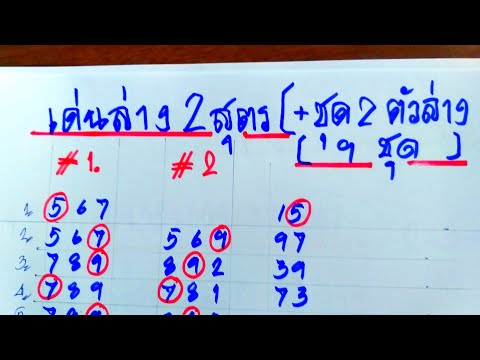 เด่นล่าง 2 สูตร [+ชุด 2 ตัวล่าง
[ 9 ชุด ]
#1. #2
1. 5 6 7 1 5
2. 5 6 7 5 6 9 9 7
3. 7 8 9 8 9 2 3 9
4. 7 8 9 7 8 1 7 3